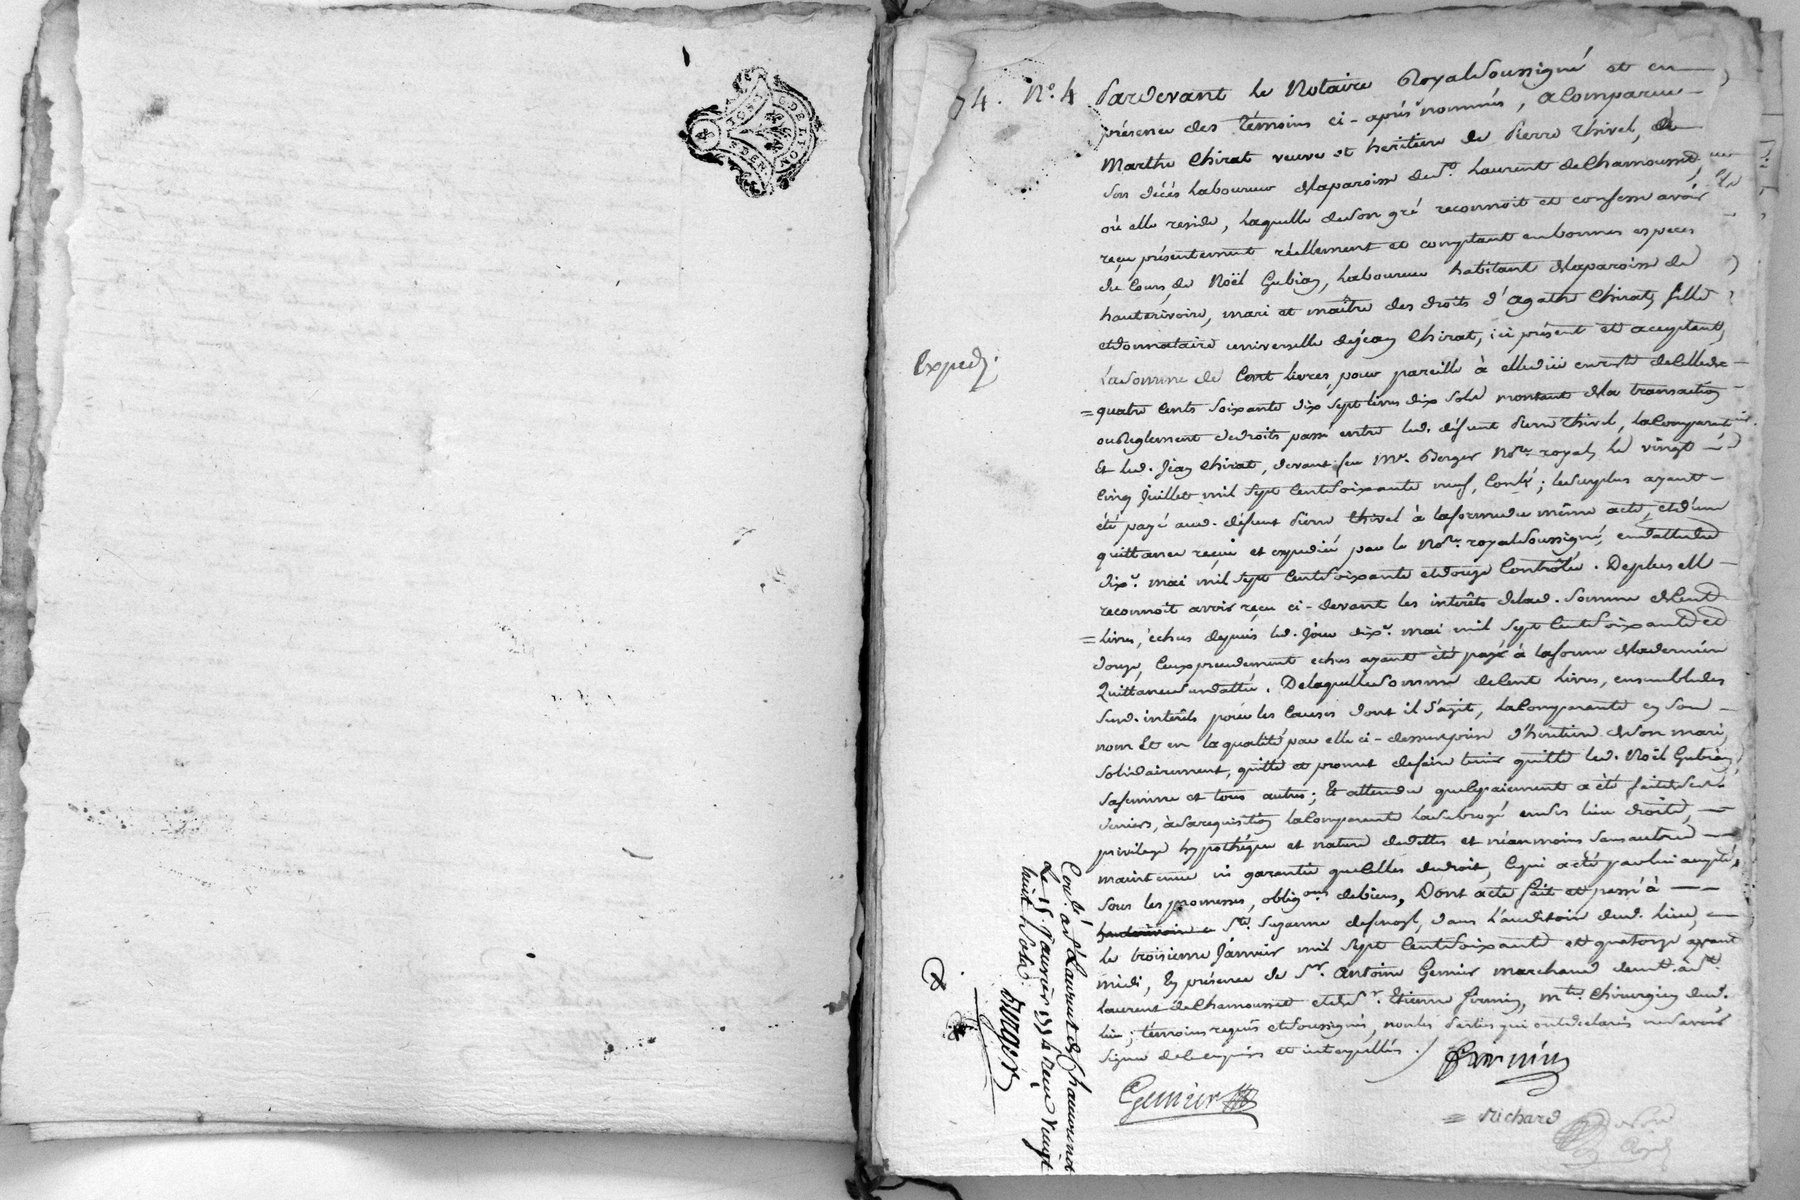 GEN. DE LYON
74. N.º 4 Pardevant le Notaire Royal Soussigné et en
présence des témoins ci-après nommés, a Comparue
Marthe Chirat veuve et heritiere de Pierre Thivel, de
son décès Laboureur dela paroisse de S.t Laurent de Chamousset,
où elle reside, Laquelle de son gré reconnoit et confesse avoir
reçu présentement réellement et comptant en bonnes especes
du Cours, de Noël Gubian, Laboureur habitant dela paroisse de
hauterivoire, mari et maître des droits d'agathe Chirat, fille
et donnataire universelle de jean Chirat, ici présent et acceptant,
La Somme de Cent livres, pour pareille à elle düe en reste de Celle de
= quatre Cents soixante dix sept livres dix sols montant dela transaction
ou Reglement de droits passé entre led. défunt Pierre Thivel, la Comparante
Et led. Jean Chirat, devant feu M.e Berger No.re royal, le vingt
Cinq Juillet mil sept Cent Soixante neuf, Conlé; le surplus ayant
été payé aud. défunt Pierre Thivel à la forme du même acte, et d'une
quittance reçue et expediée par le No.re royal Soussigné, en datte du
dix.e mai mil sept Cent Soixante et douze Contrôlée. De plus elle
reconnoit avoir reçu ci-devant les interêts de lad. Somme de Cent
= Livres, échus depuis led. jour dix.e mai mil sept Cent Soixante et
douze, Ceux précedemment echus ayant été payé à la forme de la derniere
Quittance Sus dattée. De laquelle Somme de Cent Livres, ensemble des
Susd. interêts pour les Causes dont il s'agit, La Comparante en son
nom Et en la qualité par elle ci-dessus prise d'heritiere de Son mari,
solidairement, quitte et promet de faire tenir quitte led. Noël Gubian,
Sa femme et tous autres; Et attendu que le paiement a été fait de ses
deniers, à Sa requisition La Comparante L'a Subrogé en Ses lieu droits,
privilege hypothéque et nature de dettes et néanmoins Sans autre
maintenue ni garantie que Celles de droit, Ce qui a été par lui accepté,
Sous les promesses, oblig.ons de biens, Dont acte fait et passé à
hauterivoire S.te Suzanne dans L'auditoire dud. Lieu,
Le troisieme Janvier mil sept Cent Soixante et quatorze avant
midi, En présence de S.r Antoine Gemier marchand demt. à S.t
Laurent de Chamousset et de S.r Etienne firmin, m.tre Chirurgien dud.
lieu; témoins requis et Soussignés, non les Parties qui ont déclarés ne Savoir
Signer de Ce enquises et interpellées.
Expedi.
Con.lé à S.t Laurent de Chamousset
Le 15 Janvier 1774 Reçu vingt
huit Sols
Burger
firmin
Gemier
= Richard